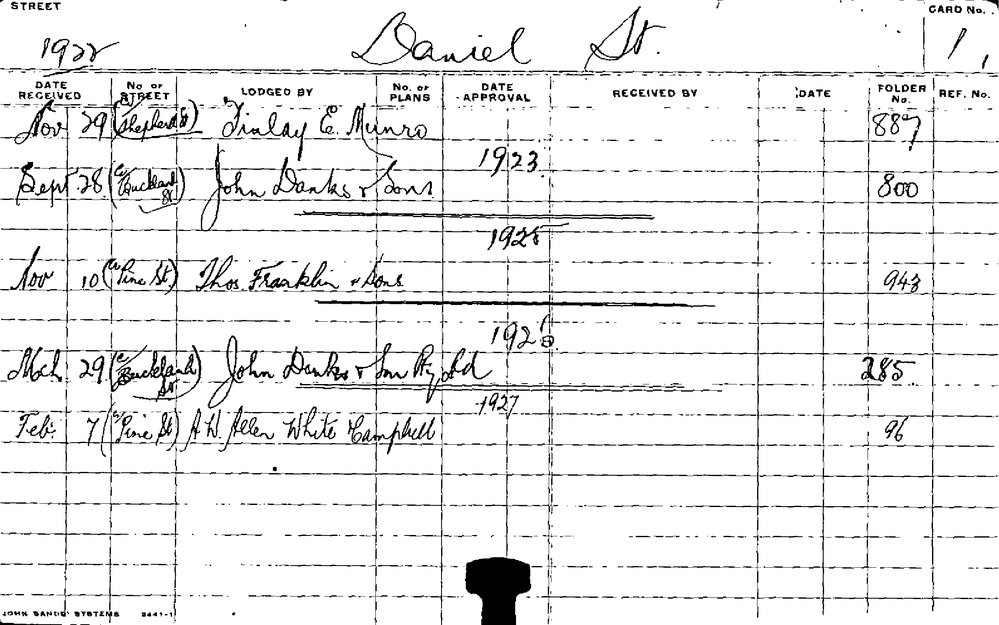 STREET Daniel St. CARD No. 1,
1922
DATE RECEIVED No of STREET LODGED BY No. of PLANS DATE APPROVAL RECEIVED BY DATE FOLDER No. REF. No.
Nov 29 (c/ Shepherd St) Finlay E. Munro 887
1923
Sept 28 (c/ Buckland St) John Danks & Sons 800
1925
Nov 10 (c/ Pine St) Thos. Franklin & Sons 943
1926
Mch 29 (c/ Buckland St) John Danks & Son Pty Ltd 285
1927
Feb: 7 (c/ Pine St) A W. Allen White Campbell 96
JOHN SANDS' SYSTEMS 3441-1